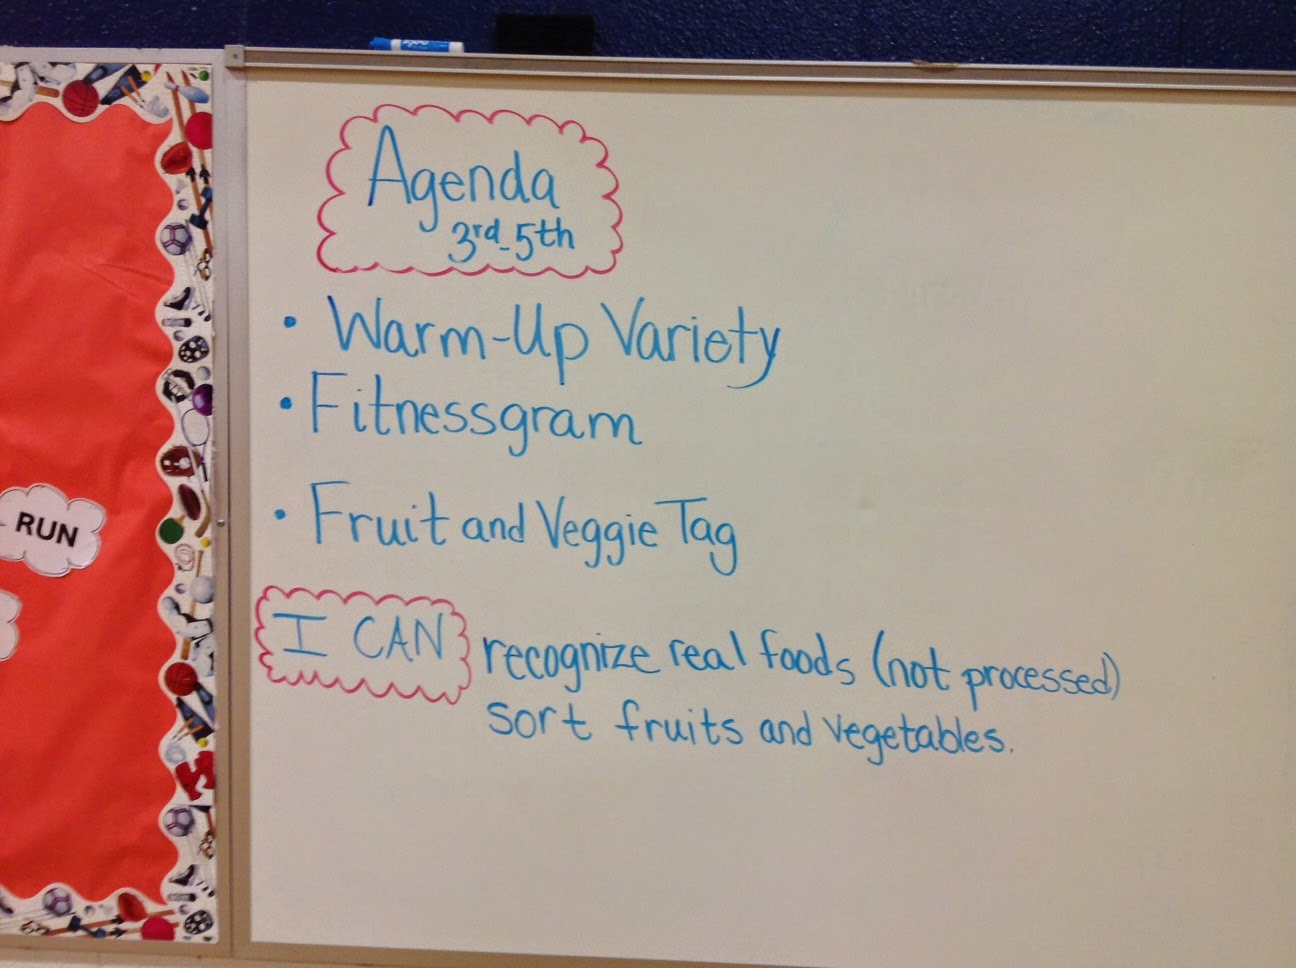 Agenda
3rd-5th
• Warm-Up Variety
• Fitnessgram
• Fruit and Veggie Tag
I CAN recognize real foods (not processed)
sort fruits and vegetables.
RUN